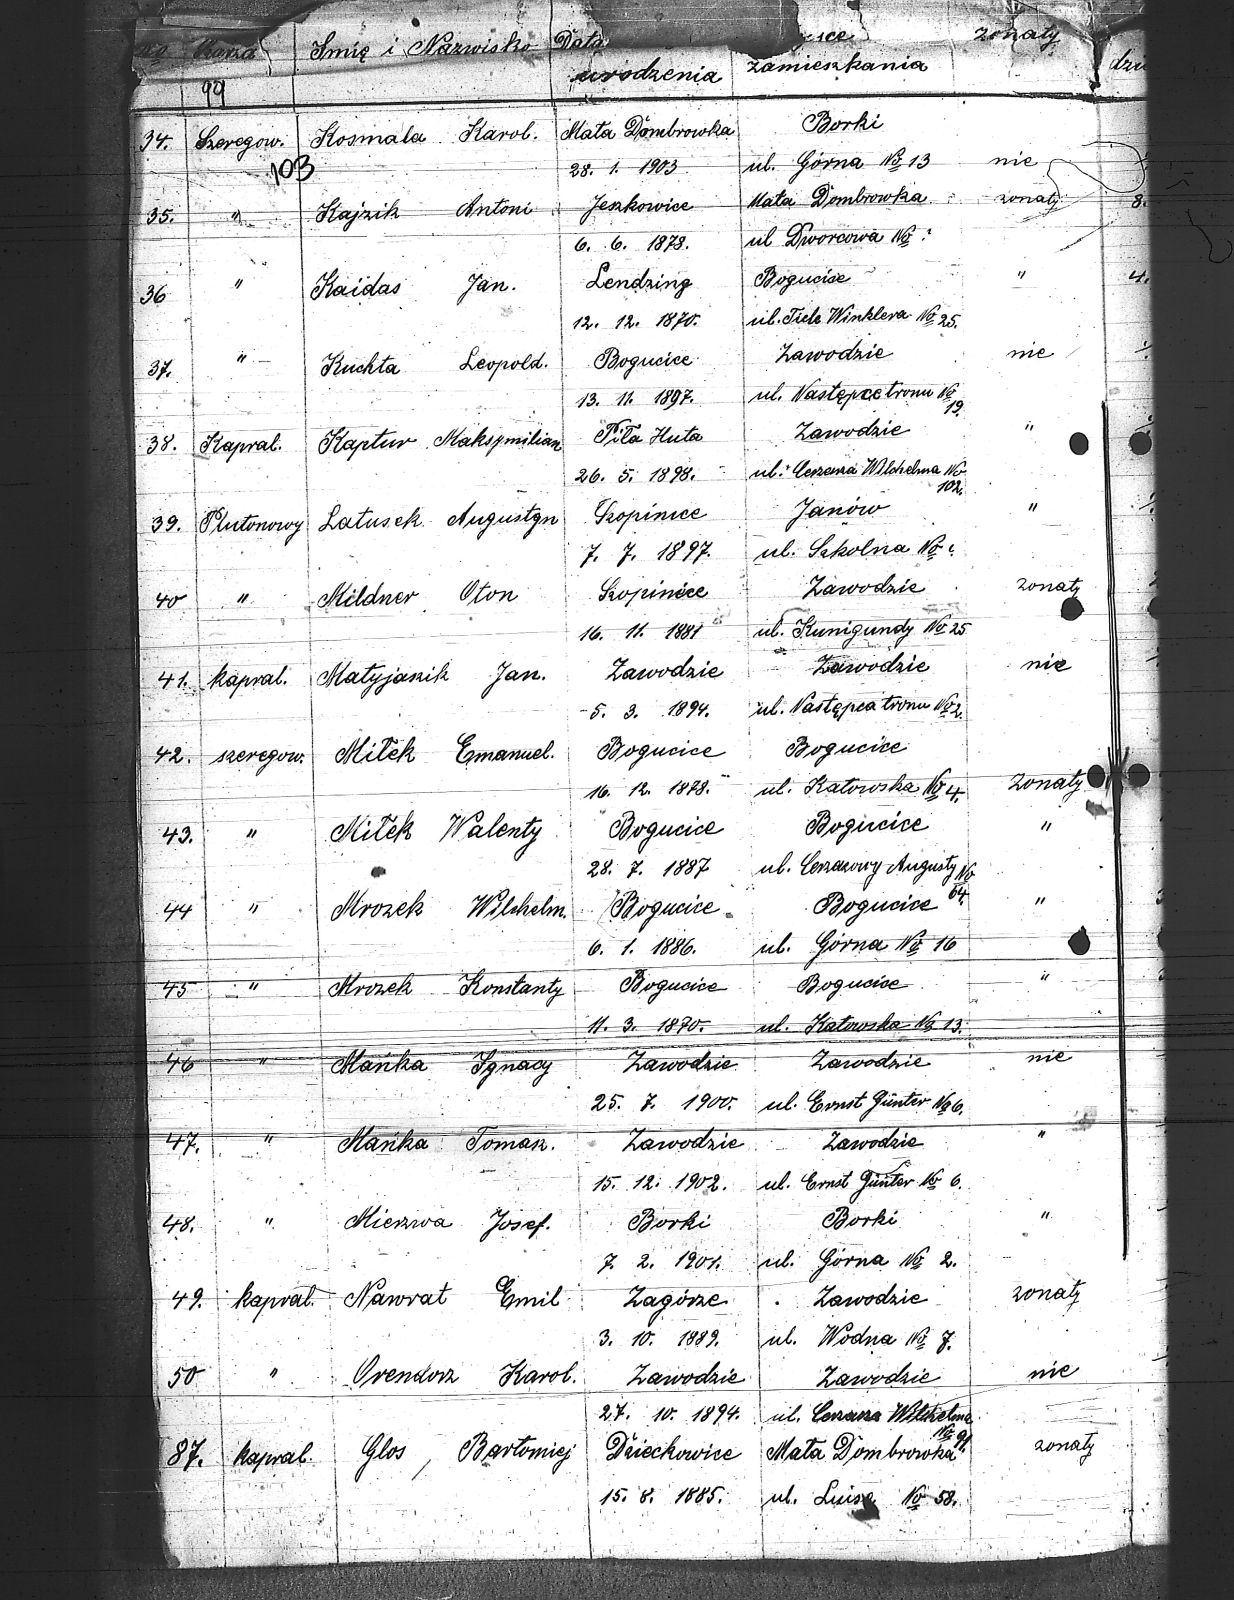 Imię i Nazwisko Data żonaty
urodzenia zamieszkania
99
34. Szeregow. Kosmala Karol. Mała Dombrowka Borki
103 28. 1. 1903 ul. Górna No 13 nie
35. " Kajzik Antoni Jeszkowice Mała Dombrowka żonaty 8.
6. 6. 1878. ul Dworcowa No ?
36 " Kaidas Jan. Lendzing Bogucice " 4.
12. 12. 1870. ul. Tiele Winklera No 25.
37. " Kuchta Leopold. Bogucice Zawodzie nie
13. 11. 1897. ul. Następce tronu No 19.
38. Kapral. Kaptur Maksymilian Piła Huta Zawodzie "
26. 5. 1898. ul. Cesarza Wilchelma No 102.
39. Plutonowy Latusek Augustyn Szopinice Janów "
7. 7. 1897. ul. Szkolna No ?
40 " Mildner Oton Szopinice Zawodzie żonaty
16. 11. 1881 ul. Kunigundy No 25
41. kapral. Matyjaszik Jan. Zawodzie Zawodzie nie
5. 3. 1894. ul. Następca tronu No 2.
42. szeregow. Miłek Emanuel. Bogucice Bogucice
16. 12. 1878. ul. Katowska No 4. żonaty
43. " Miłek Walenty Bogucice Bogucice "
28. 7. 1887 ul. Cesarzowy Augusty No 64.
44 " Mrozek Wilchelm. Bogucice Bogucice "
6. 1. 1886. ul. Górna No 16
45 " Mrozek Konstanty Bogucice Bogucice "
11. 3. 1870. ul. Katowska No 13.
46 " Mańka Ignacy Zawodzie Zawodzie nie
25. 7. 1900. ul. Ernst Günter No 6.
47. " Mańka Tomasz. Zawodzie Zawodzie "
15. 12. 1902. ul. Ernst Günter No 6.
48. " Mierzwa Josef. Borki Borki "
7. 2. 1901. ul. Górna No 2.
49. kapral. Nawrat Emil Zagórze Zawodzie żonaty
3. 10. 1889. ul. Wodna No 7.
50 " Orendorz Karol. Zawodzie Zawodzie nie
27. 10. 1894. ul. Cesarza Wilchelma No 91.
87. kapral. Glos, Bartomiej Dzieckowice Mała Dombrowka żonaty
15. 8. 1885. ul. Luisa No 58.